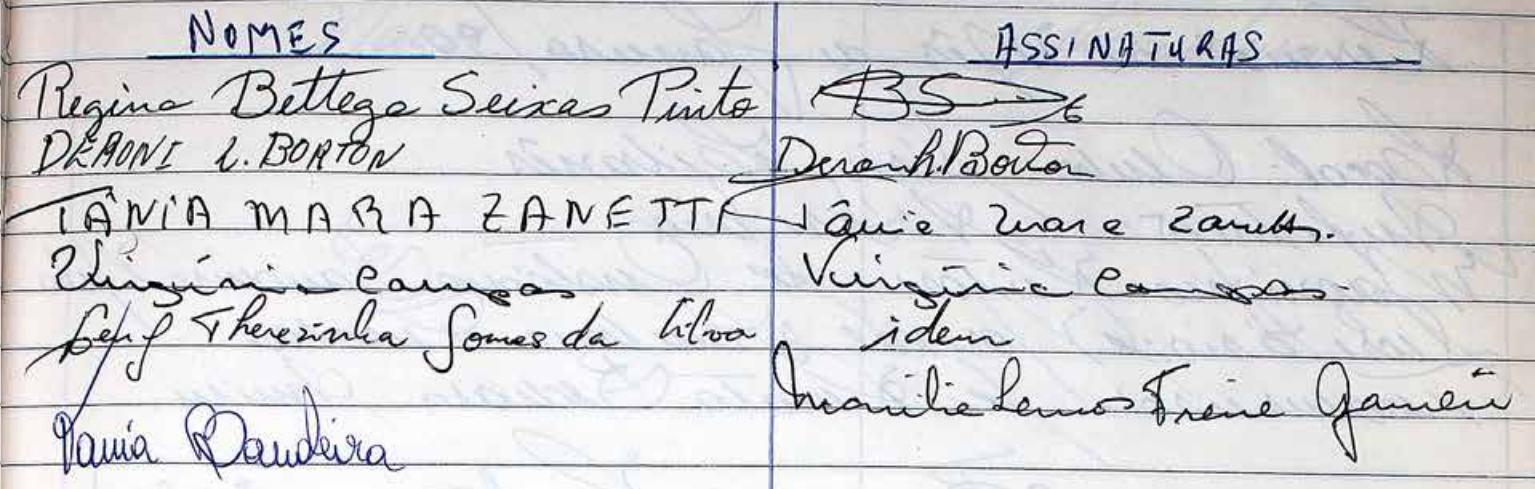 NOMES ASSINATURAS
Regina Bettega Seixas Pinto BS
DERONI L. BORTON Deroni L. Borton
TÂNIA MARA ZANETTI Tânia Mara Zanetti.
Virgínia Campos Virgínia Campos
Therezinha Gomes da Silva idem
Marilie Lemos Freire
Vania Bandeira